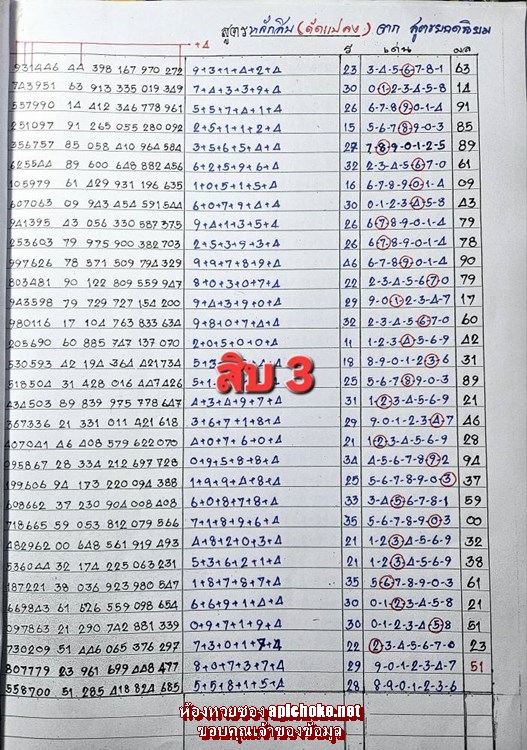 สูตรหลักสิบ (ดัดแปลง) จาก สูตรยอดนิยม
+4 8 เด่น ผล
931446 44 398 167 970 272 9+3+1+4+2+4 23 3-4-5-6-7-8-1 63
743951 63 913 335 019 349 7+4+3+3+9+4 30 0-1-2-3-4-5-8 14
537990 14 412 346 778 961 5+5+7+4+1+4 26 6-7-8-9-0-1-4 91
251097 91 265 055 280 092 2+5+1+1+2+4 15 5-6-7-8-9-0-3 85
356757 85 058 410 964 584 3+5+6+5+4+4 27 7-8-9-0-1-2-5 89
625544 89 600 648 882 456 6+2+5+9+6+4 32 2-3-4-5-6-7-0 61
105979 61 429 931 196 635 1+0+5+1+5+4 16 6-7-8-9-0-1-4 09
607063 09 943 454 591 544 6+0+7+9+4+4 30 0-1-2-3-4-5-8 43
941395 43 056 330 587 375 9+4+1+3+5+4 26 6-7-8-9-0-1-4 79
253603 79 975 900 382 703 2+5+3+9+3+4 26 6-7-8-9-0-1-4 78
997626 78 371 509 794 329 9+9+7+8+9+4 46 6-7-8-9-0-1-4 90
803481 90 122 809 559 947 8+0+3+0+7+4 22 2-3-4-5-6-7-0 79
943598 79 729 727 154 200 9+4+3+9+0+4 29 9-0-1-2-3-4-7 17
980116 17 104 763 833 634 9+8+0+7+4+4 32 2-3-4-5-6-7-0 60
205690 60 885 747 137 070 2+0+5+0+0+4 11 1-2-3-4-5-6-9 42
530593 42 194 364 421 734 5+3 18 8-9-0-1-2-3-6 31
518504 31 428 016 447 426 5+1 25 5-6-7-8-9-0-3 89
สิบ 3
434503 89 839 975 778 647 4+3+4+9+7+4 31 1-2-3-4-5-6-9 21
367336 21 331 011 421 618 3+6+7+1+8+4 29 9-0-1-2-3-4-7 46
407041 46 408 579 622 070 4+0+7+6+0+4 21 1-2-3-4-5-6-9 28
295867 28 334 212 697 728 0+9+5+8+8+4 34 4-5-6-7-8-9-2 94
199606 94 173 220 094 388 1+9+9+4+8+4 25 5-6-7-8-9-0-3 37
608662 37 230 904 008 408 6+0+8+7+8+4 33 3-3-4-5-6-7-8-1 59
718665 59 053 812 079 566 7+1+8+9+6+4 35 5-6-7-8-9-0-3 00
482962 00 648 561 919 493 4+8+2+0+3+4 21 1-2-3-4-5-6-9 32
536044 32 174 225 063 231 5+3+6+2+1+4 21 1-2-3-4-5-6-9 38
187221 38 036 923 980 547 1+8+7+8+7+4 35 5-6-7-8-9-0-3 61
669843 61 626 559 098 654 6+6+9+1+4+4 30 0-1-2-3-4-5-8 21
097863 21 290 742 881 339 0+9+7+1+9+4 30 0-1-2-3-4-5-8 51
730209 51 446 065 376 297 7+3+0+1+7+4 22 2-3-4-5-6-7-0 23
807779 23 961 699 448 477 8+0+7+3+7+4 29 9-0-1-2-3-4-7 51
558700 51 285 418 824 685 5+5+8+1+5+4 28 8-9-0-1-2-3-6
ห้องหายซอง apichoke.net
ขอบคุณเจ้าของข้อมูล